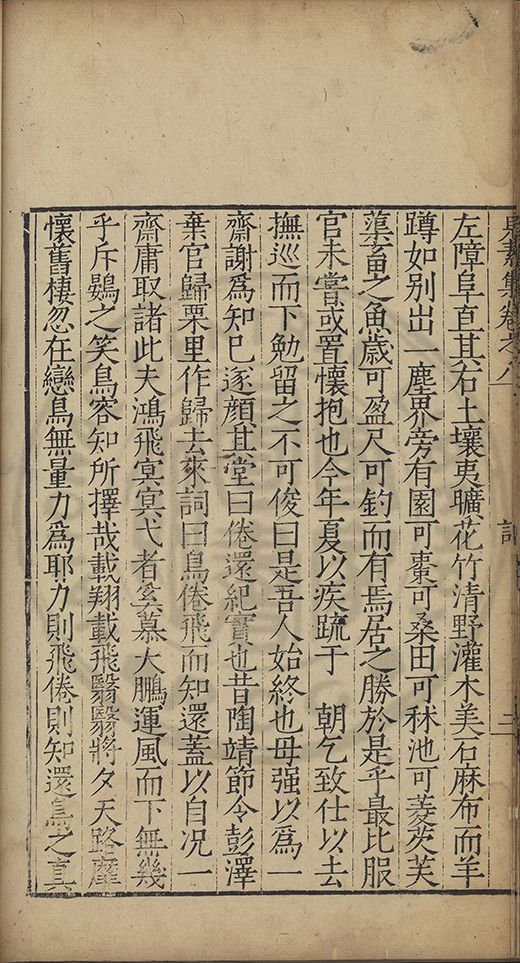 集卷之
記
二
左障阜直其右土壤夷曠花竹清野灌木美石麻布而羊
蹲如別出一塵界旁有園可棗可桑田可秫池可菱芡芙
蕖畜之魚歲可盈尺可釣而有焉居之勝於是乎最比服
官未嘗或置懷抱也今年夏以疾疏于　朝乞致仕以去
撫巡而下勉留之不可俊曰是吾人始終也毋强以爲一
齋謝爲知已遂顔其堂曰倦還紀實也昔陶靖節令彭澤
棄官歸栗里作歸去來詞曰鳥倦飛而知還蓋以自況一
齋庸取諸此夫鴻飛冥冥弋者奚慕大鵬運風而下無幾
乎斥鷃之笑鳥容知所擇哉載翔載飛翳翳將夕天路靡
懷舊棲忽在戀鳥無量力爲耶力則飛倦則知還鳥之真